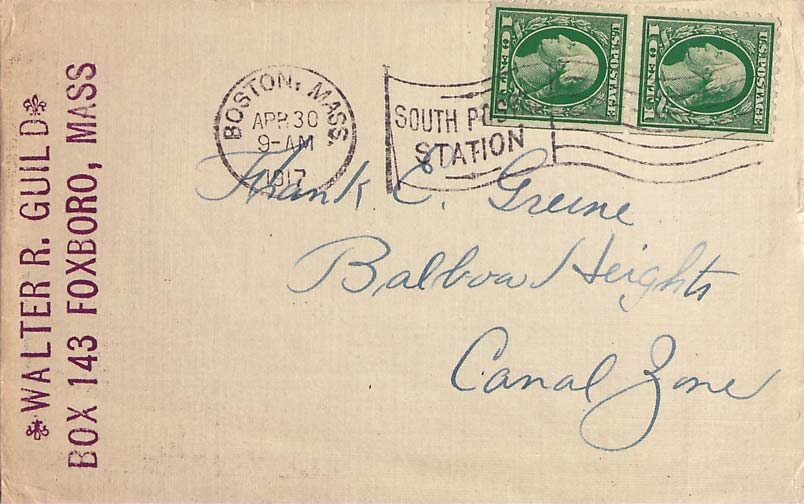 WALTER R. GUILD
BOX 143 FOXBORO, MASS
BOSTON, MASS.
APR 30
9-AM
1917
SOUTH
STATION
U.S. POSTAGE
1 CENT 1
U.S. POSTAGE
1 CENT 1
Frank C. Greene
Balboa Heights
Canal Zone